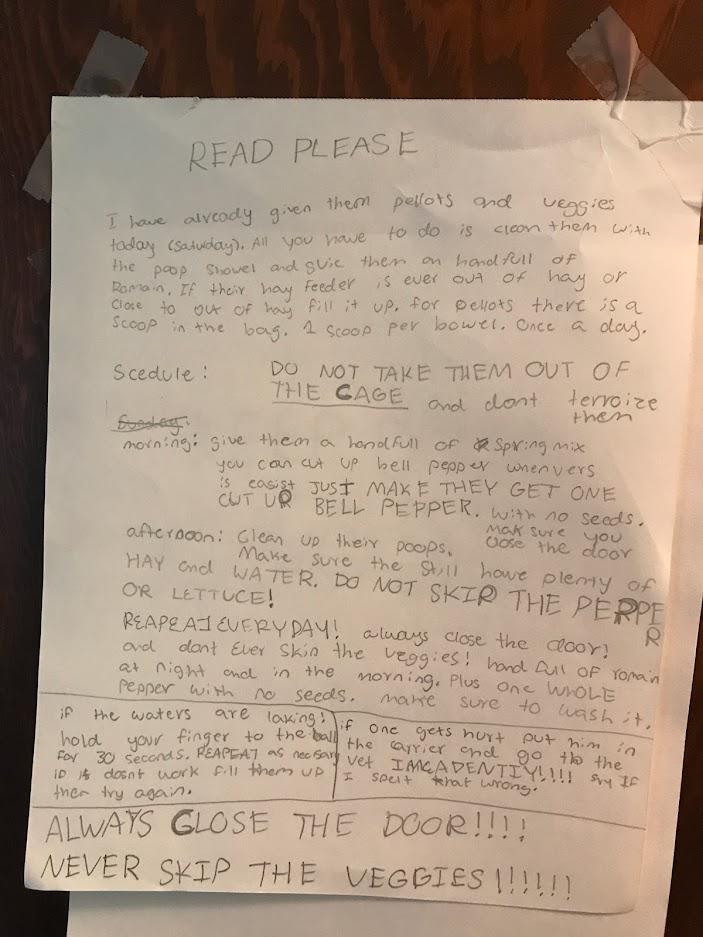 READ PLEASE
I have already given them pellots and veggies
today (Satuday). All you have to do is clean them with
the poop shovel and give them an handfull of
Romain. If their hay feeder is ever out of hay or
Close to out of hay fill it up. for pellots there is a
Scoop in the bag. 1 scoop per bowel. Once a day.
Scedule: DO NOT TAKE THEM OUT OF
THE CAGE and dont terroize
them
Sunday:
morning: give them a handfull of Spring mix
you can cut up bell pepper whenvers
is easist JUST MAKE THEY GET ONE
CUT UP BELL PEPPER. with no seeds.
afternoon: Clean up their poops. mak sure you
close the door
Make sure the still have plenty of
HAY and WATER. DO NOT SKIP THE PEPPE
R
OR LETTUCE!
REAPEAT EVERYDAY! always close the door!
and dont Ever skip the veggies! hand full of romain
at night and in the morning. Plus one WHOLE
Pepper with no seeds. make sure to wash it.
if the waters are laking!
hold your finger to the ball
for 30 seconds. REAPEAT as necisary
if doant work fill them up
then try again.
if one gets hurt put him in
the carrier and go to the
vet IMEADENTIY!!!! sry If
I spelt that wrong.
ALWAYS CLOSE THE DOOR!!!!
NEVER SKIP THE VEGGIES!!!!!!